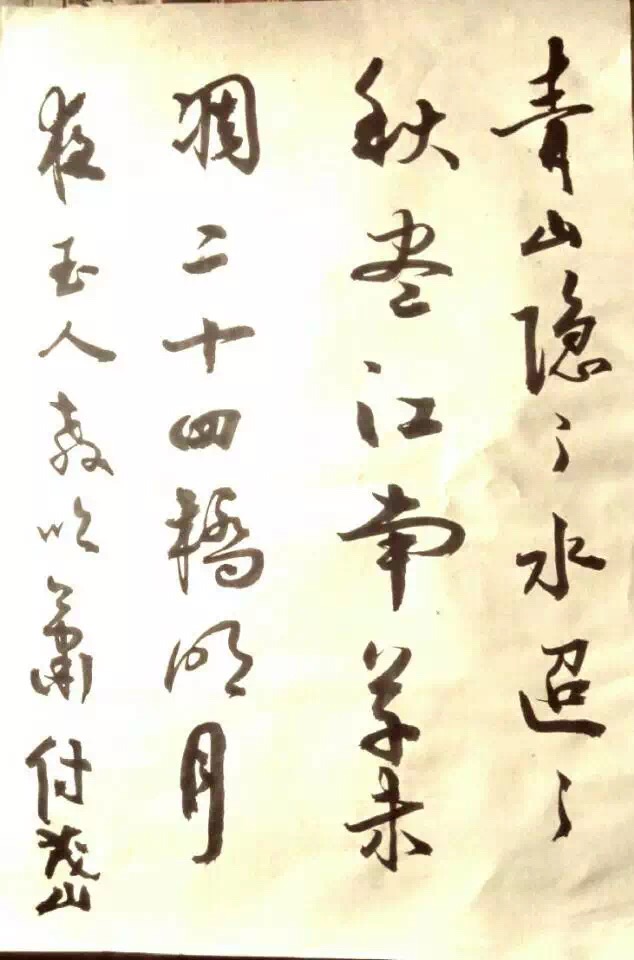 青山隐〻水迢〻
秋尽江南草未
凋二十四橋明月
夜玉人教吹箫付茂山